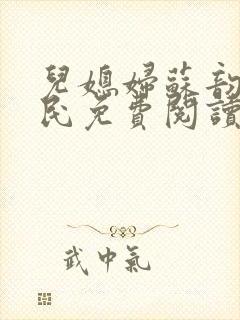 兒媳婦蘇韵
民免費閱讀
武中氣